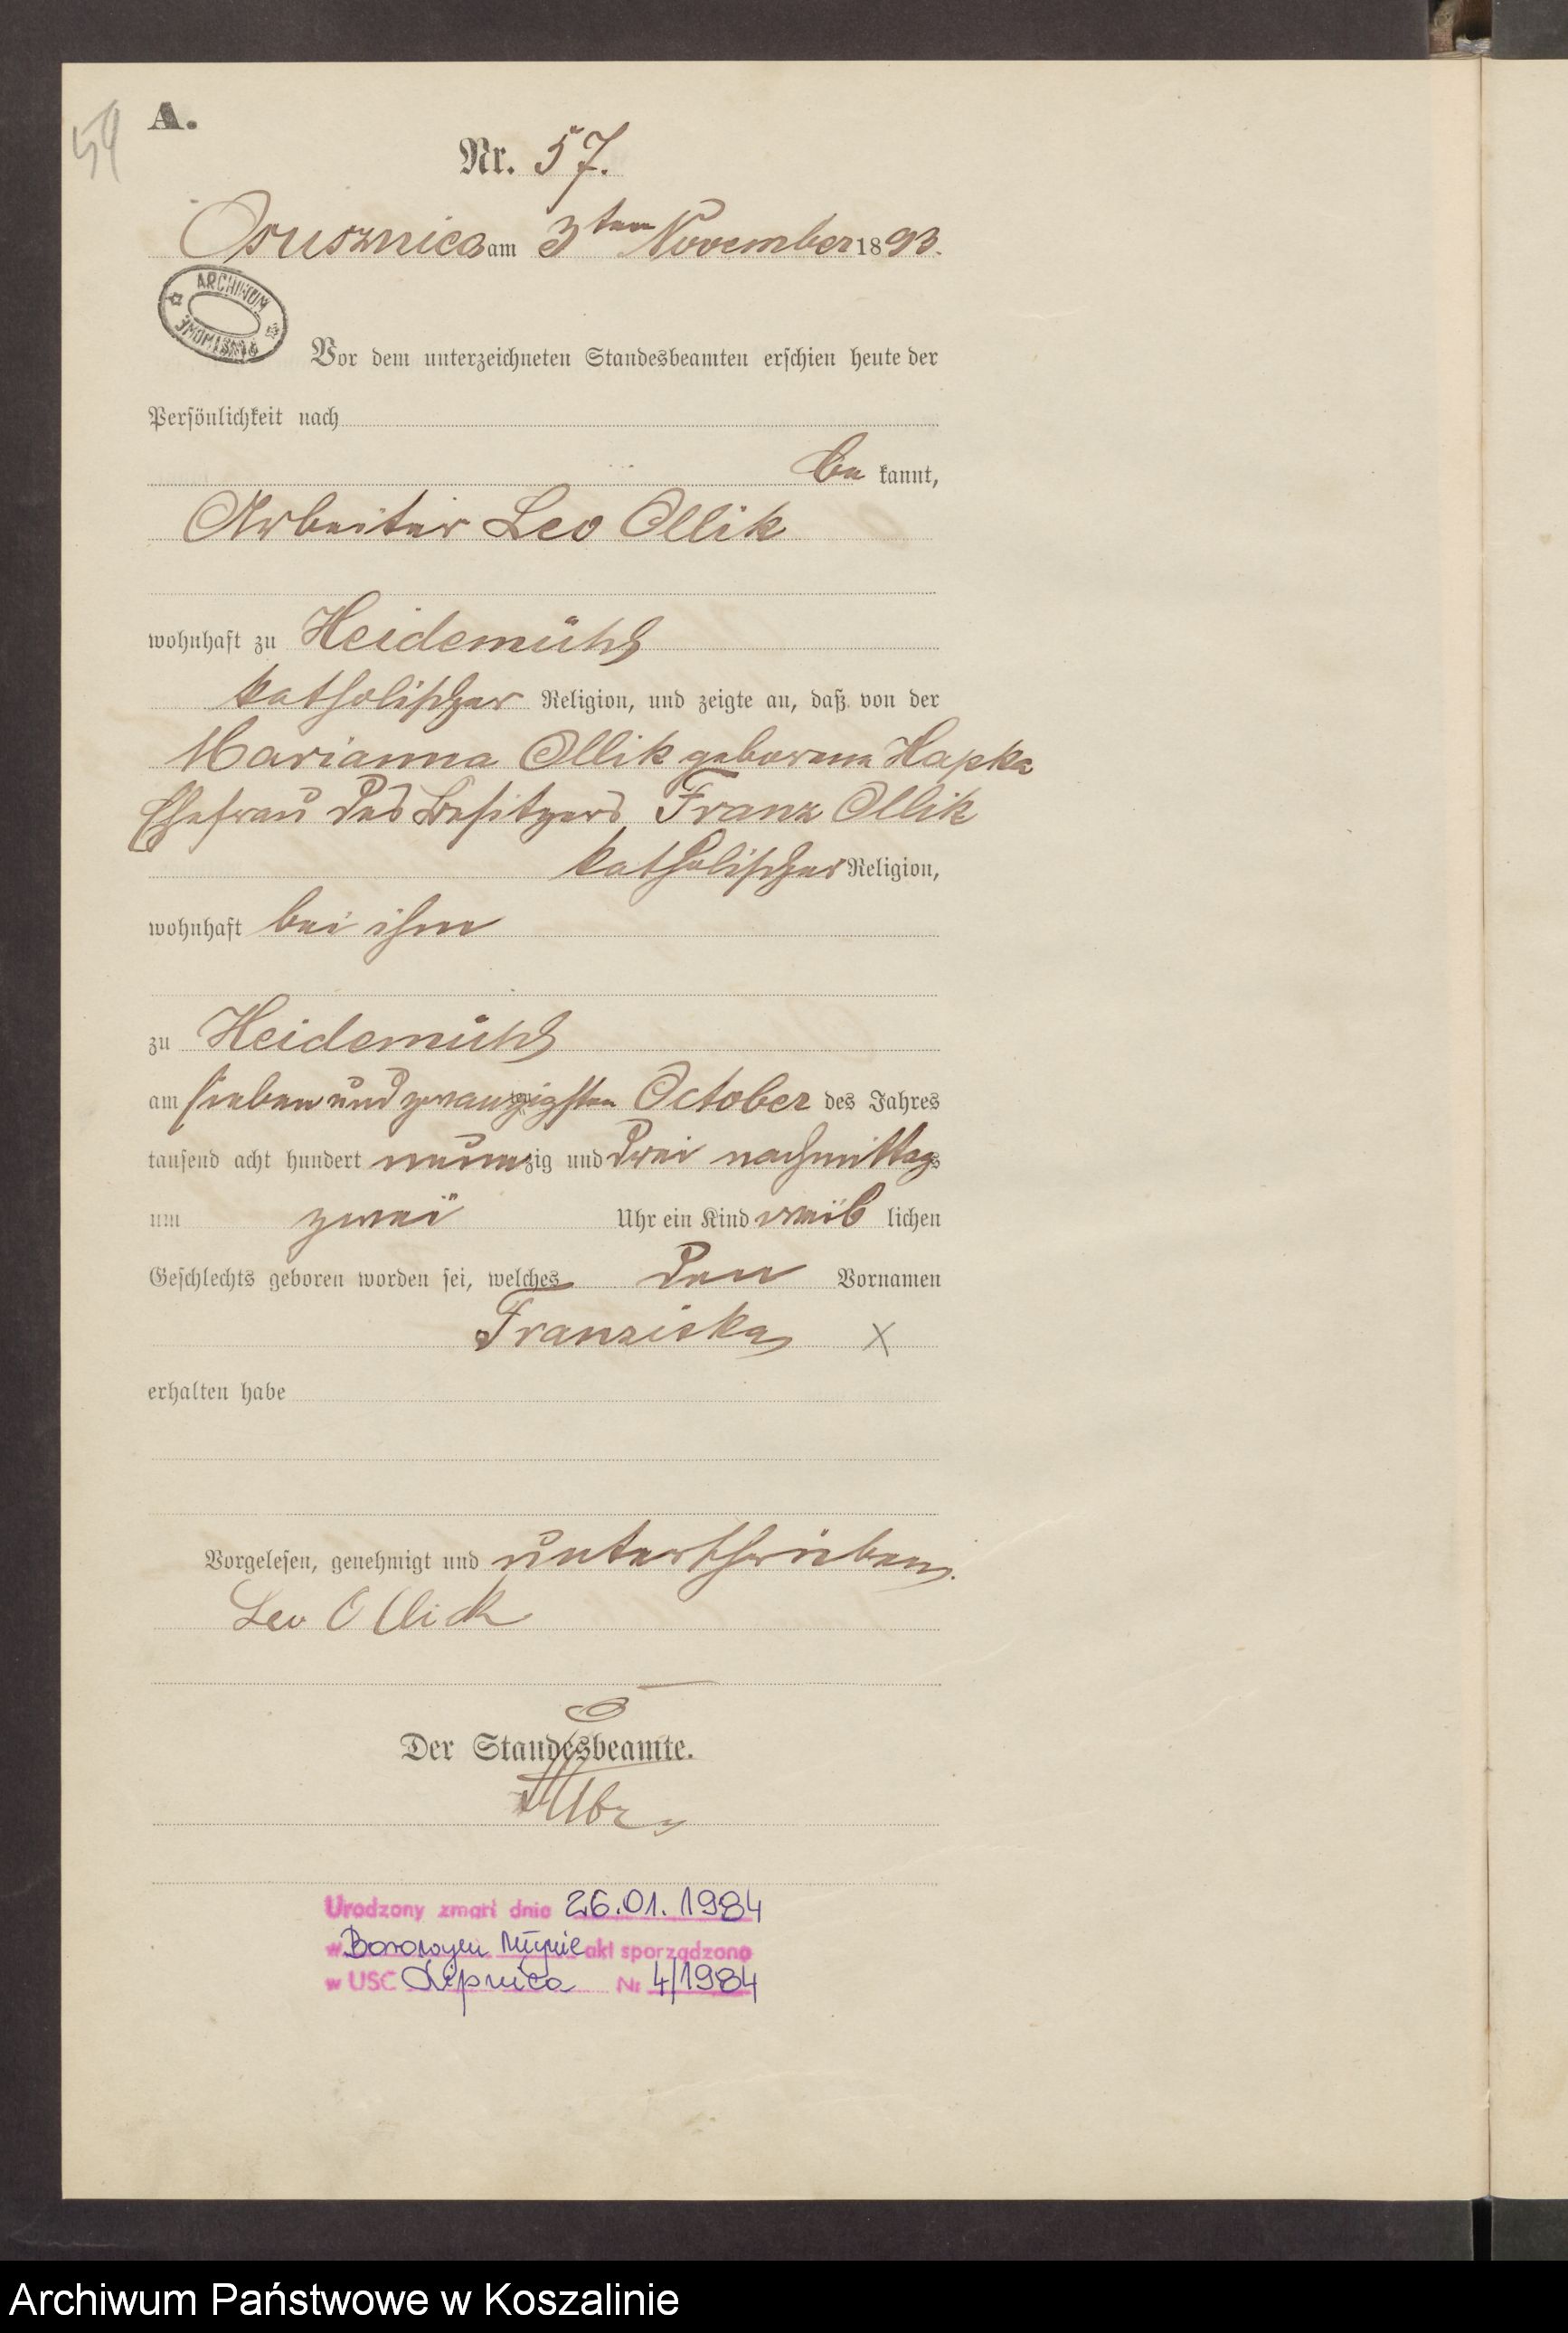 59
A.
Nr. 57.
Osusznica am 3ten November 1893.
ARCHIWUM PAŃSTWOWE
Vor dem unterzeichneten Standesbeamten erschien heute der
Persönlichkeit nach
be kannt,
Arbeiter Leo Ollik
wohnhaft zu Heidemühl
katholischer Religion, und zeigte an, daß von der
Marianna Ollik geborene Hapka
Ehefrau des Besitzers Franz Ollik
katholischer Religion,
wohnhaft bei ihm
zu Heidemühl
am siebenundzwanzigsten October des Jahres
tausend acht hundert neunzig und drei nachmittags
um zwei Uhr ein Kind weib lichen
Geschlechts geboren worden sei, welches den Vornamen
Franziska X
erhalten habe
Vorgelesen, genehmigt und unterschrieben.
Leo Ollick
Der Standesbeamte.
Urodzony zmarł dnia 26.01.1984
w Borowym Młynie akt sporządzono
w USC Lipnica Nr 4/1984
Archiwum Państwowe w Koszalinie